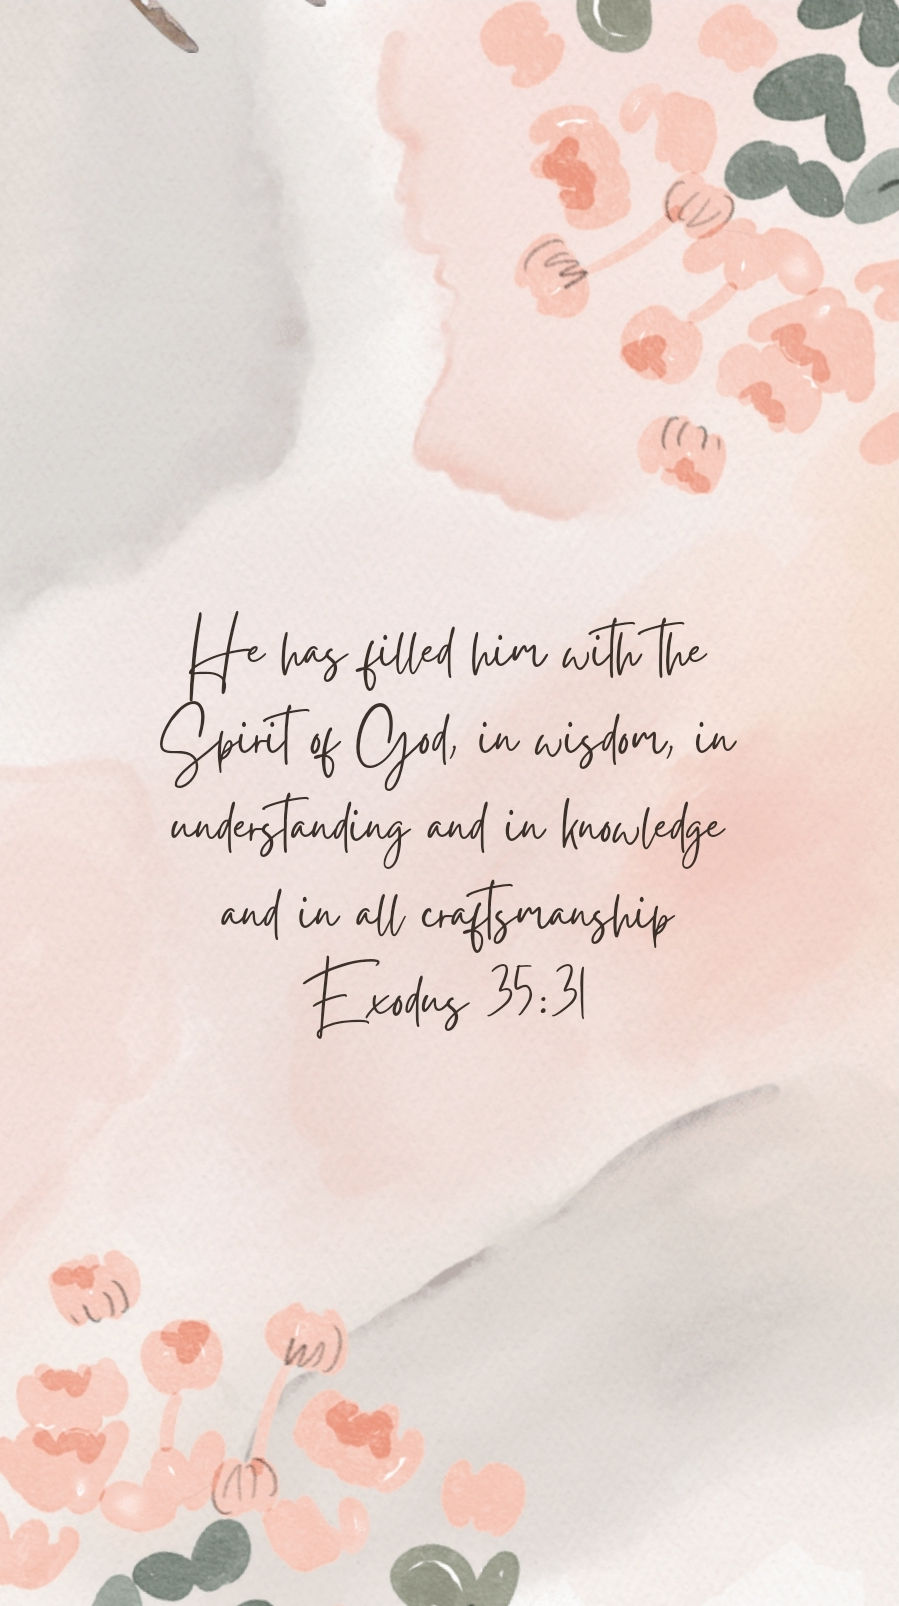 He has filled him with the
Spirit of God, in wisdom, in
understanding and in knowledge
and in all craftsmanship
Exodus 35:31